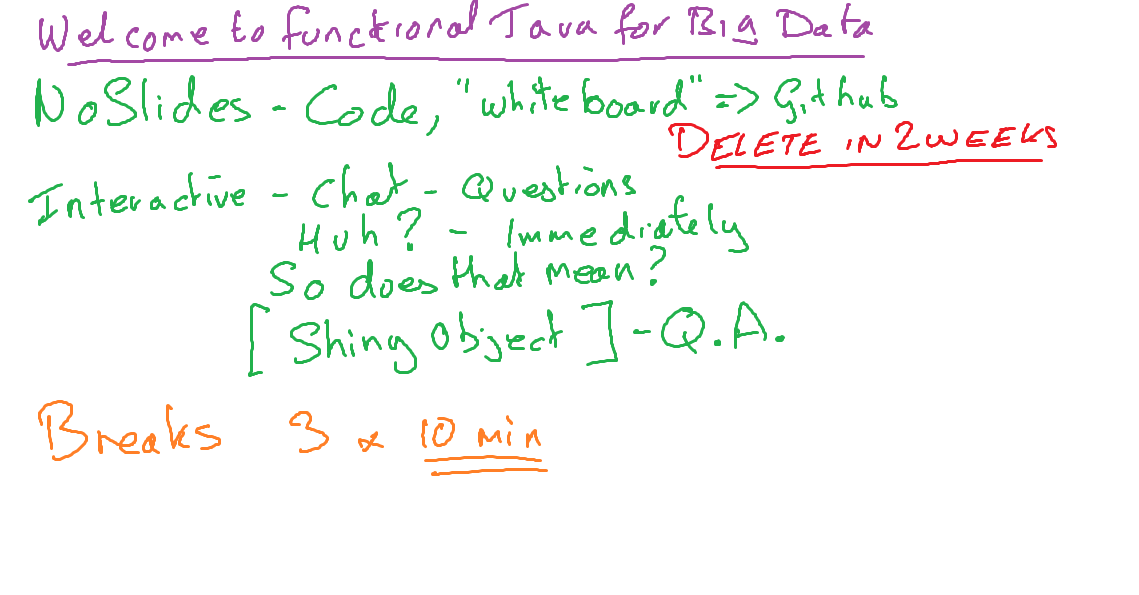 Welcome to functional Java for Big Data
NoSlides - Code, "whiteboard" => Github
DELETE IN 2 WEEKS
Interactive - Chat - Questions
Huh? - Immediately
So does that mean?
[ Shiny Object ] - Q.A.
Breaks 3 x 10 min